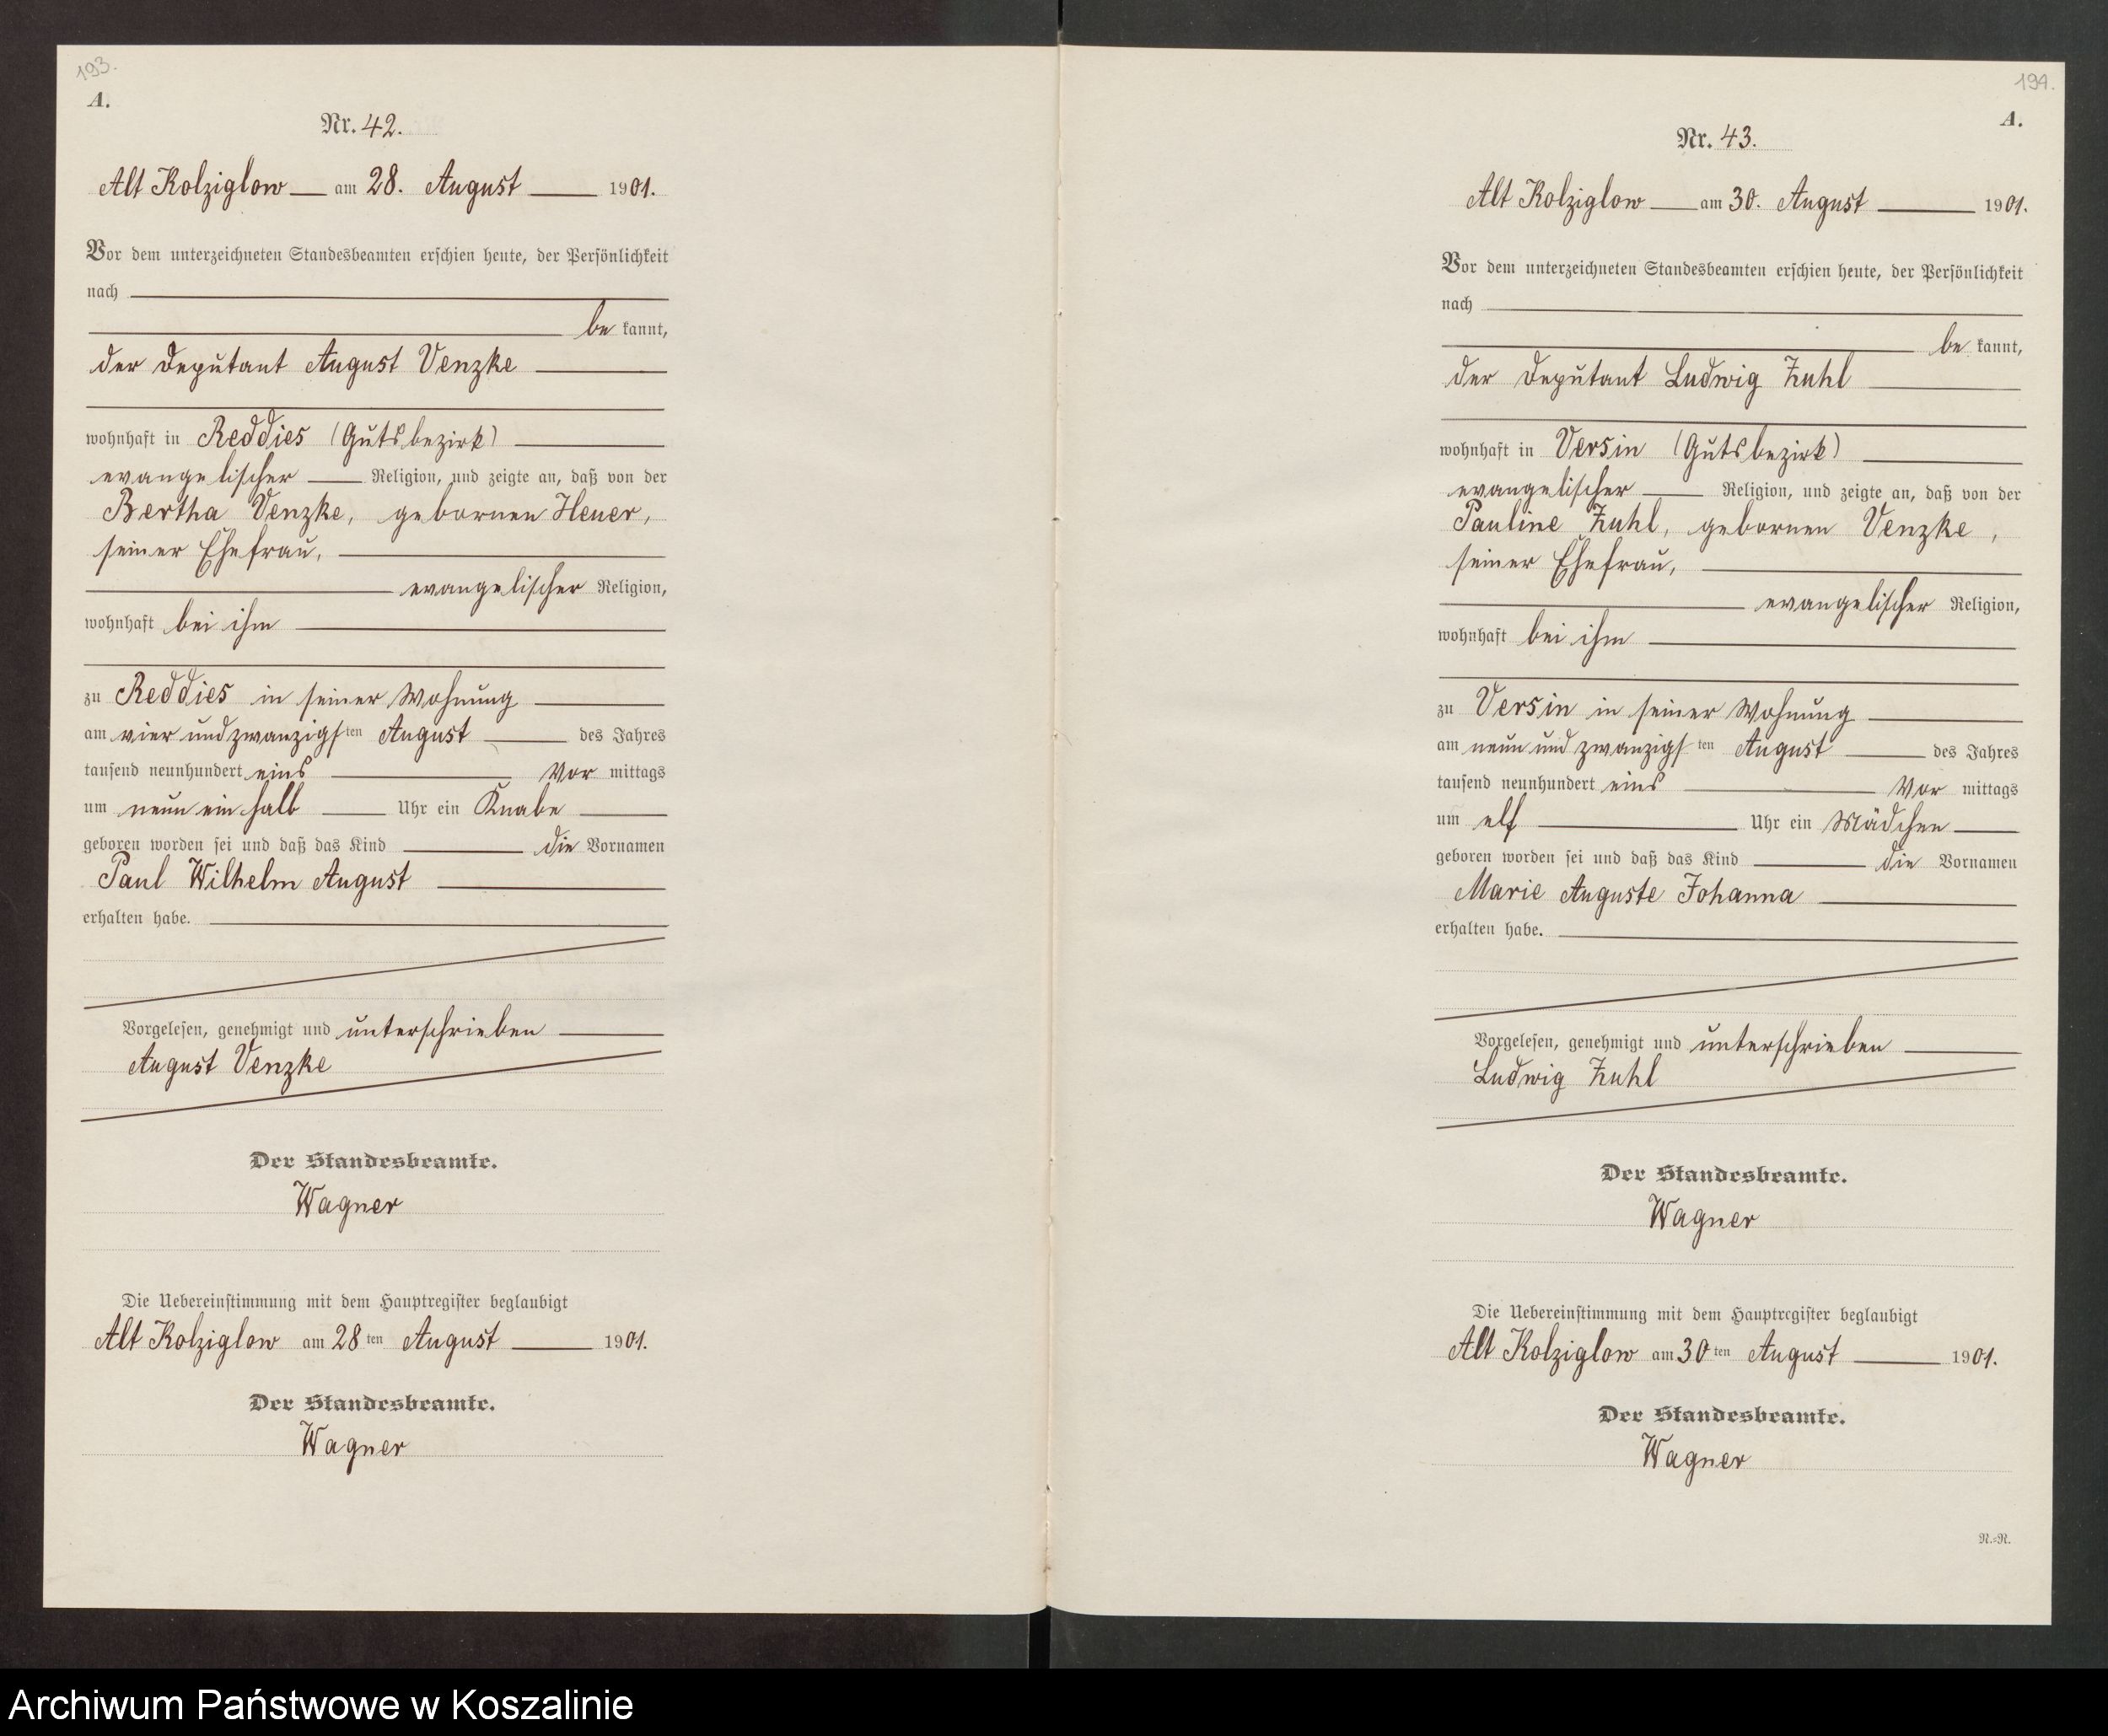 193.
A.
Nr. 42.
Alt Kolziglow am 28. August 1901.
Vor dem unterzeichneten Standesbeamten erschien heute, der Persönlichkeit
nach
be kannt,
der Deputant August Venzke
wohnhaft in Reddies (Gutsbezirk)
evangelischer Religion, und zeigte an, daß von der
Bertha Venzke, gebornen Heuer,
seiner Ehefrau,
evangelischer Religion,
wohnhaft bei ihm
zu Reddies in seiner Wohnung
am vier und zwanzigsten August des Jahres
tausend neunhundert eins Vor mittags
um neun ein halb Uhr ein Knabe
geboren worden sei und daß das Kind die Vornamen
Paul Wilhelm August
erhalten habe.
Vorgelesen, genehmigt und unterschrieben
August Venzke
Der Standesbeamte.
Wagner
Die Uebereinstimmung mit dem Hauptregister beglaubigt
Alt Kolziglow am 28ten August 1901.
Der Standesbeamte.
Wagner
194.
A.
Nr. 43.
Alt Kolziglow am 30. August 1901.
Vor dem unterzeichneten Standesbeamten erschien heute, der Persönlichkeit
nach
be kannt,
der Deputant Ludwig Zuhl
wohnhaft in Versin (Gutsbezirk)
evangelischer Religion, und zeigte an, daß von der
Pauline Zuhl, gebornen Venzke,
seiner Ehefrau,
evangelischer Religion,
wohnhaft bei ihm
zu Versin in seiner Wohnung
am neun und zwanzigsten August des Jahres
tausend neunhundert eins Vor mittags
um elf Uhr ein Mädchen
geboren worden sei und daß das Kind die Vornamen
Marie Auguste Johanna
erhalten habe.
Vorgelesen, genehmigt und unterschrieben
Ludwig Zuhl
Der Standesbeamte.
Wagner
Die Uebereinstimmung mit dem Hauptregister beglaubigt
Alt Kolziglow am 30ten August 1901.
Der Standesbeamte.
Wagner
N.=N.
Archiwum Państwowe w Koszalinie